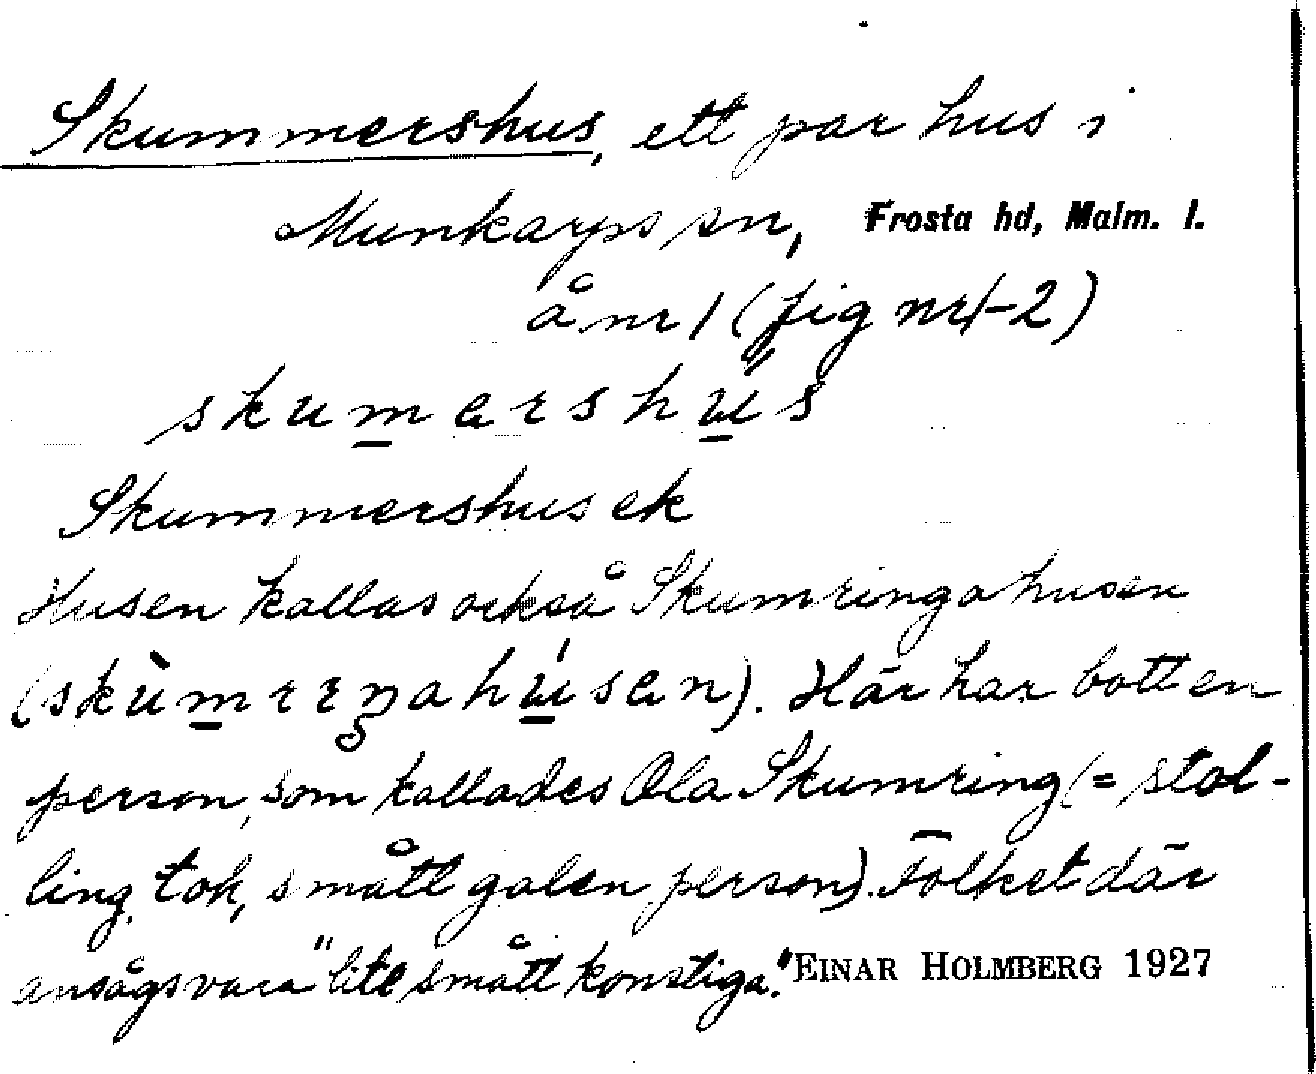 Skummershus, ett par hus i
Munkarps sn, Frosta hd, Malm. l.
å nr 1 (fig nr 1-2)
skumershu̇́s
Skummershus ek
Husen kallas också Skumringahusen
(skùmrıŋahúsen). Här har bott en
person, som kallades Ola Skumring (= stol-
ling, tok, smått galen person). Folket där
ansågs vara "lite smått konstiga." EINAR HOLMBERG 1927